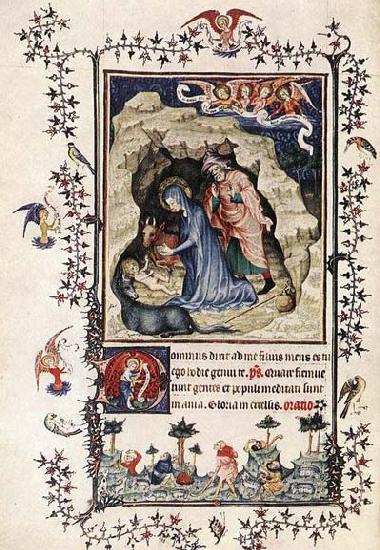 Dominus dixit ad me filius meus es tu
ego hodie genui te. ps. Quare fremue
runt gentes et populi meditati sunt
inania. Gloria in excelsis. oratio